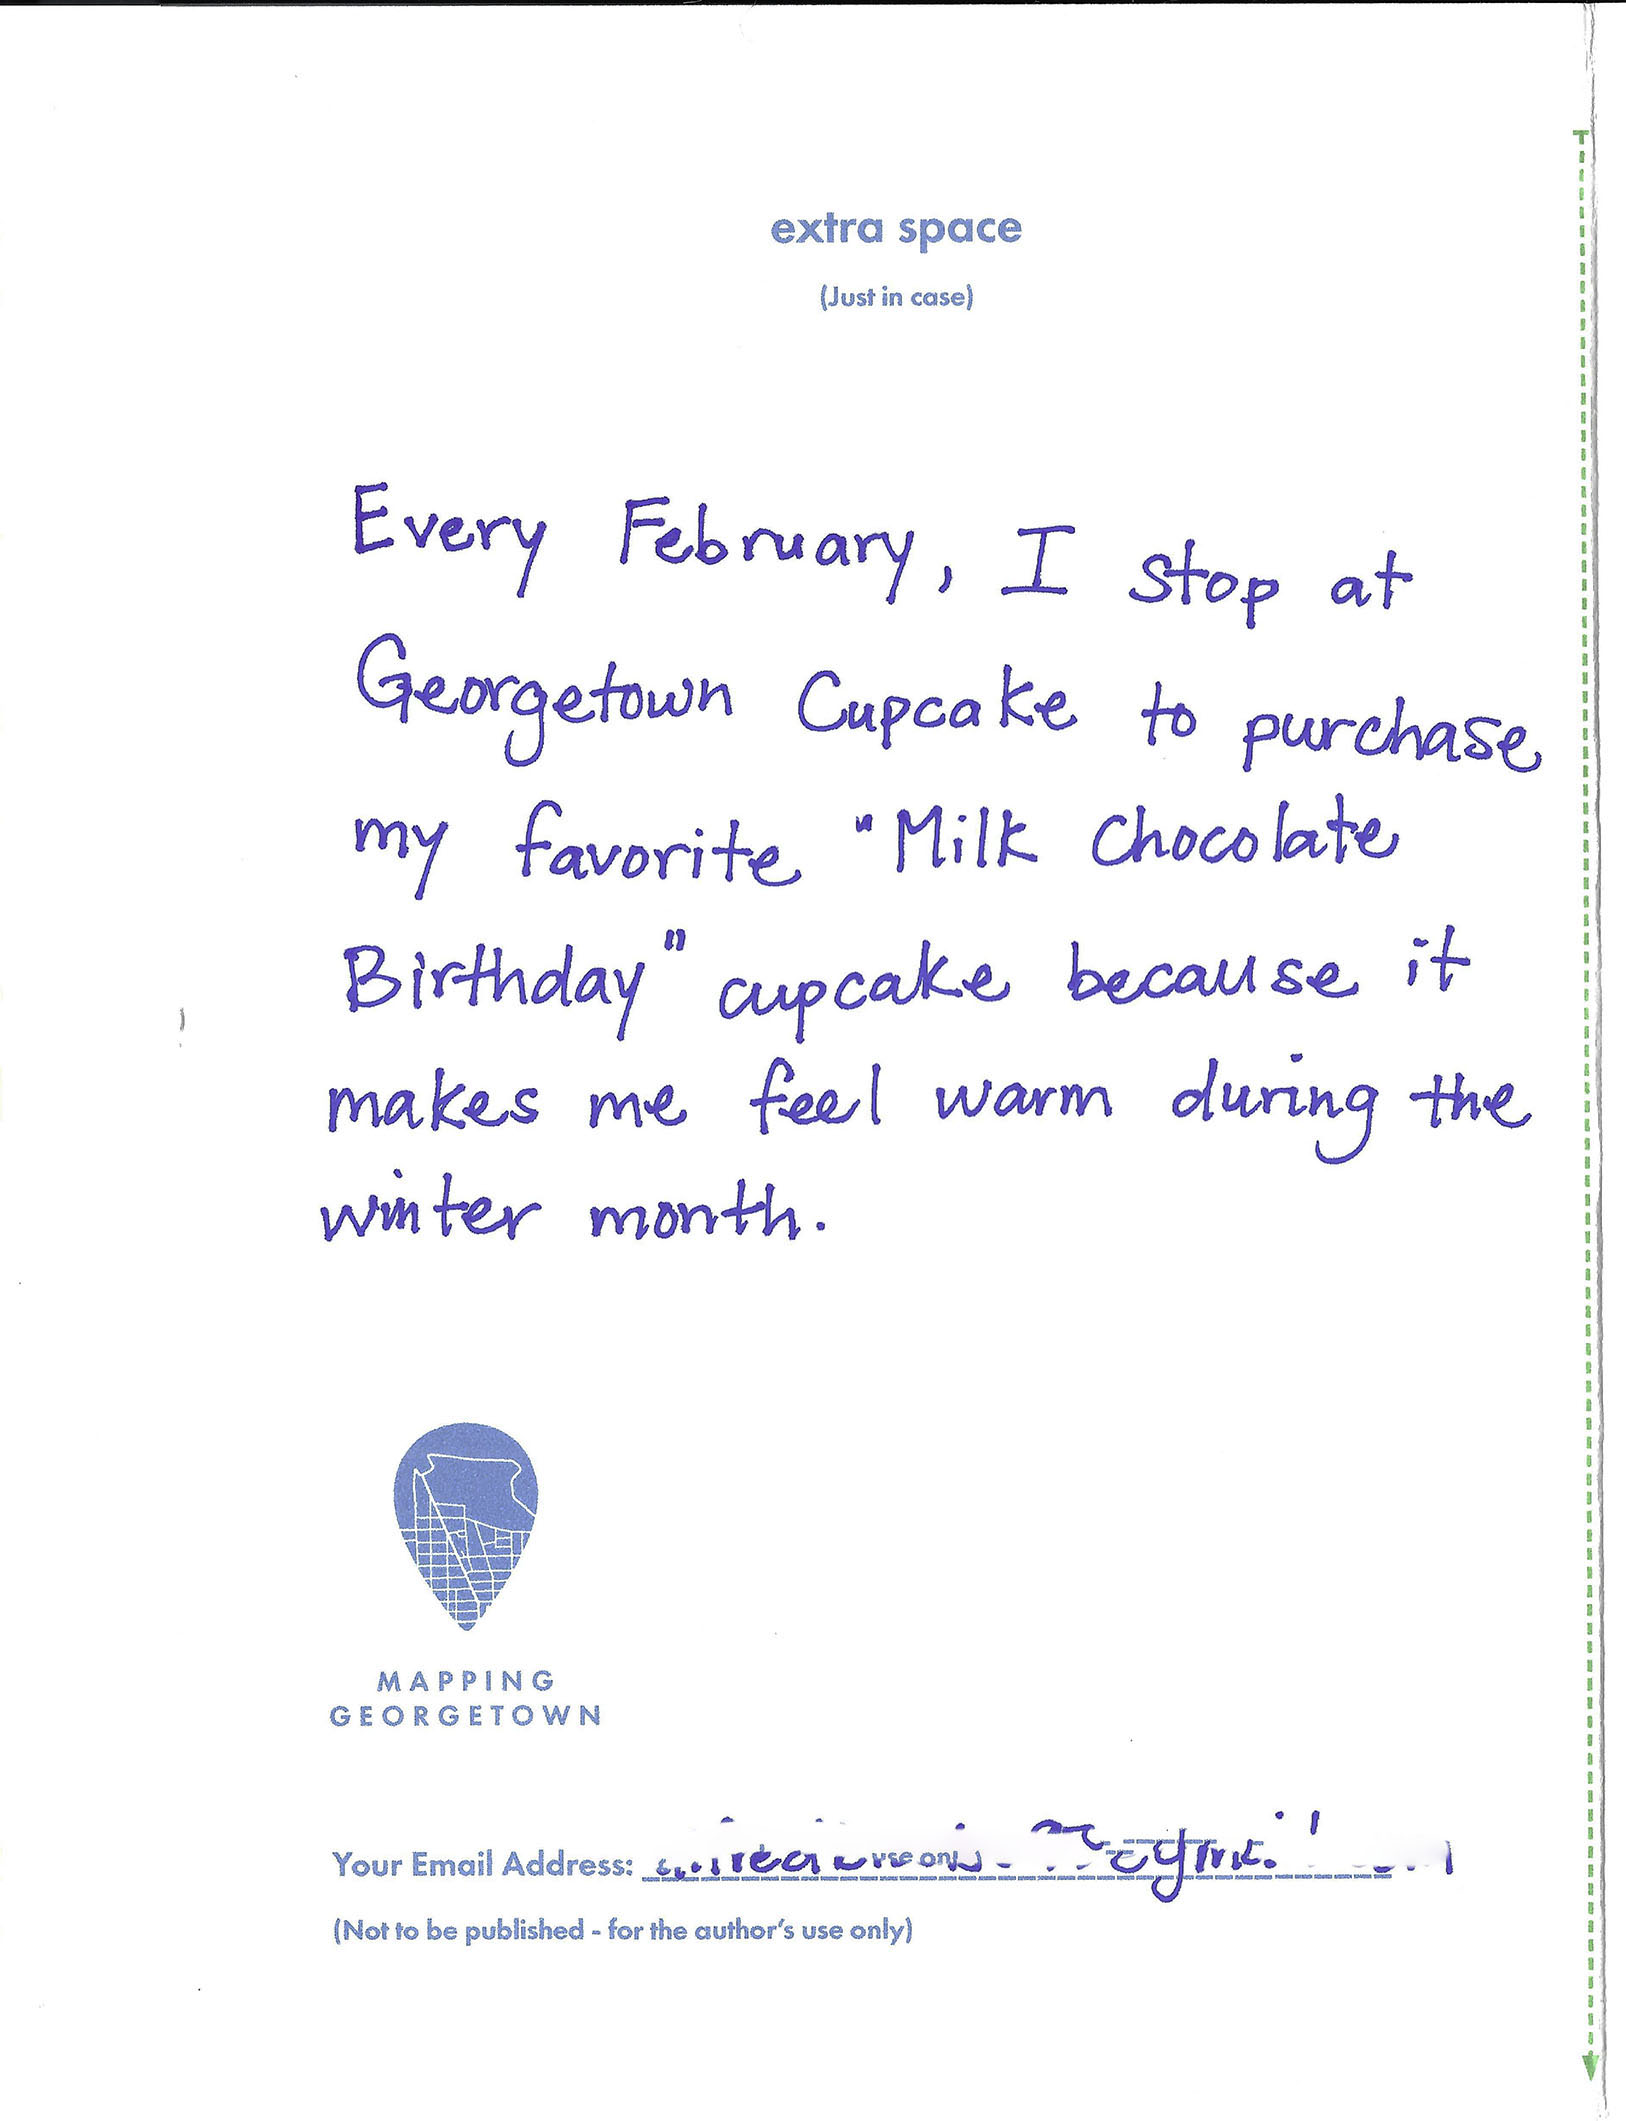 extra space
(Just in case)
Every February, I stop at
Georgetown Cupcake to purchase
my favorite "Milk Chocolate
Birthday" cupcake because it
makes me feel warm during the
winter month.
MAPPING
GEORGETOWN
Your Email Address:
(Not to be published - for the author's use only)